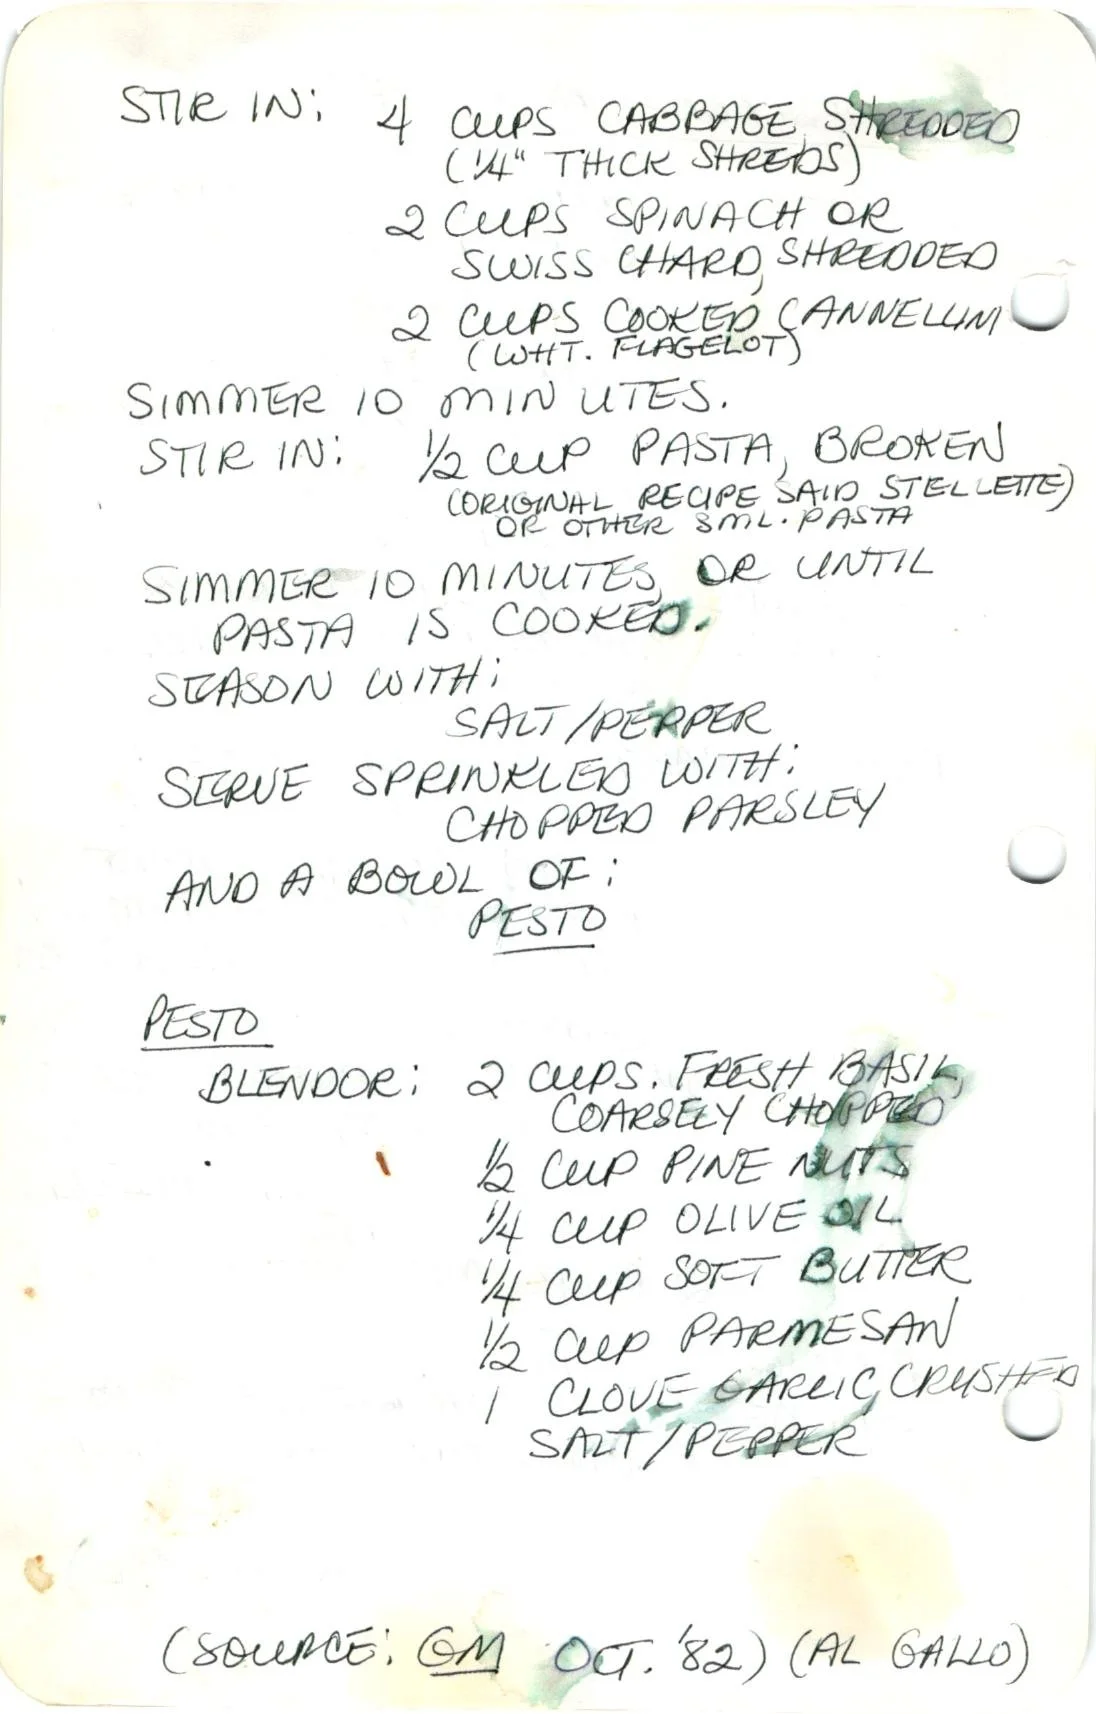 STIR IN: 4 CUPS CABBAGE, SHREDDED
(1/4" THICK SHREDS)
2 CUPS SPINACH OR
SWISS CHARD, SHREDDED
2 CUPS COOKED CANNELLINI
(WHT. FLAGELOT)
SIMMER 10 MINUTES.
STIR IN: 1/2 CUP PASTA, BROKEN
(ORIGINAL RECIPE SAID STELLETTE)
OR OTHER SML. PASTA
SIMMER 10 MINUTES, OR UNTIL
PASTA IS COOKED.
SEASON WITH:
SALT/PEPPER
SERVE SPRINKLED WITH:
CHOPPED PARSLEY
AND A BOWL OF:
PESTO
PESTO
BLENDOR: 2 CUPS. FRESH BASIL,
COARSELY CHOPPED
1/2 CUP PINE NUTS
1/4 CUP OLIVE OIL
1/4 CUP SOFT BUTTER
1/2 CUP PARMESAN
1 CLOVE GARLIC, CRUSHED
SALT/PEPPER
(SOURCE: GM OCT. '82) (AL GALLO)